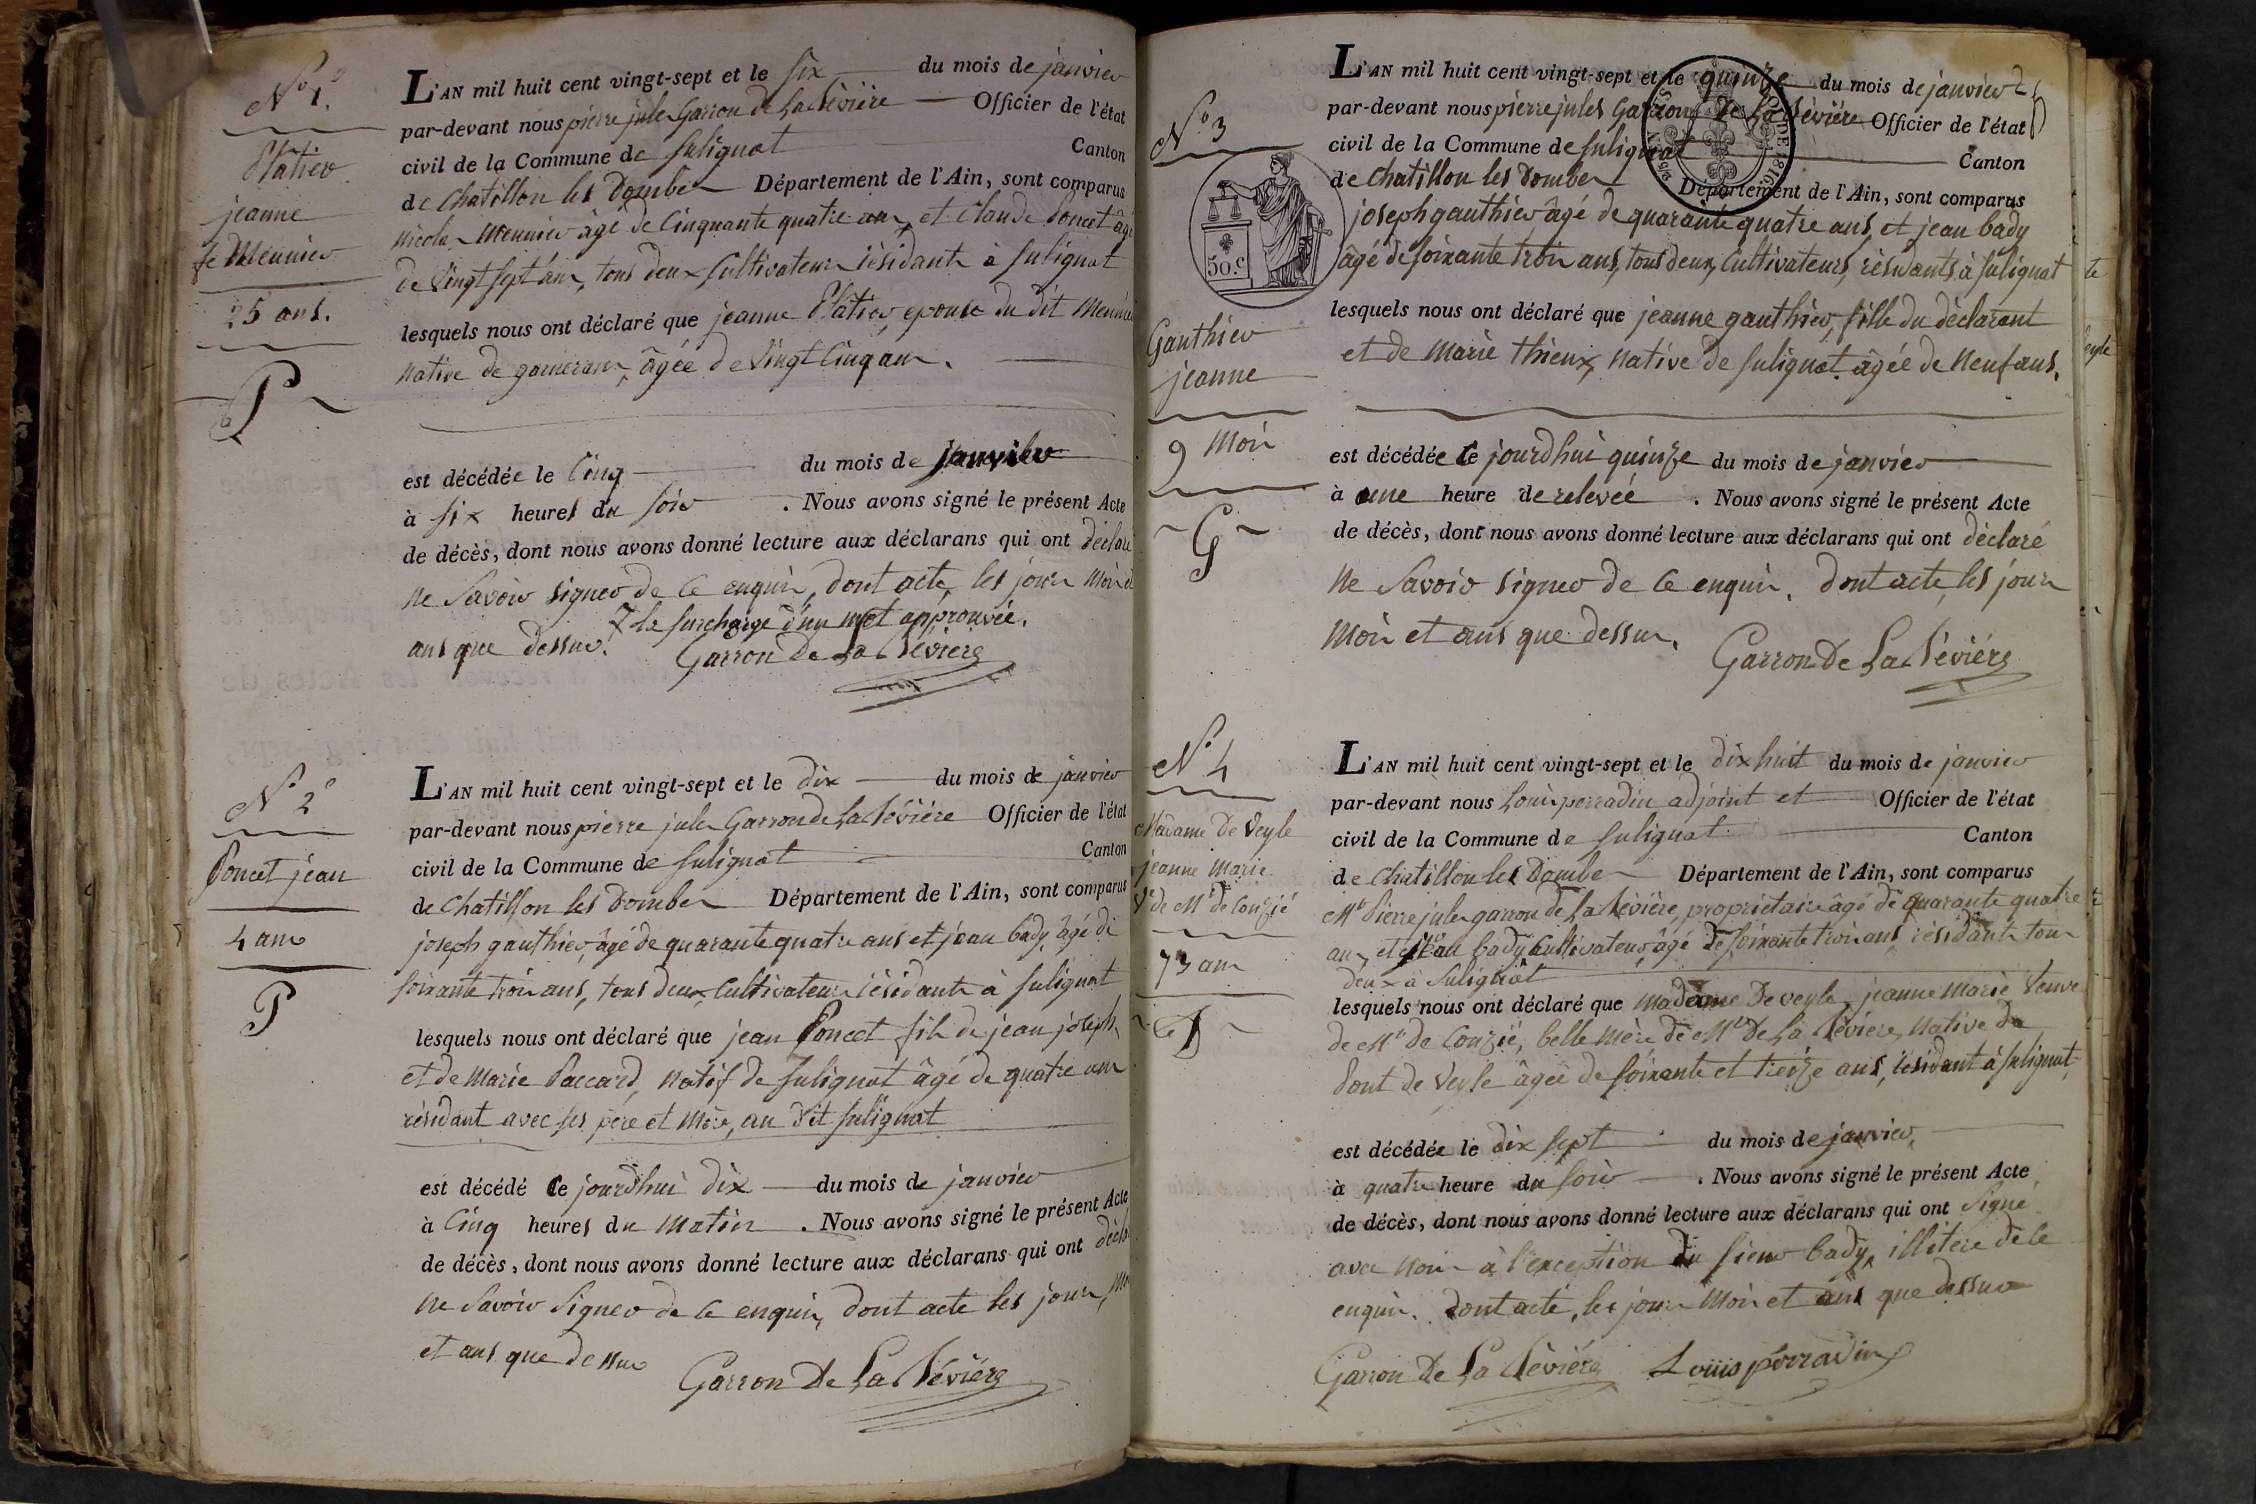 N° 1.
Platier
jeanne
fe Meunier
25 ans.
P
L'AN mil huit cent vingt-sept et le six du mois de janvier
par-devant nous pierre jules Garron de La Bévière Officier de l'état
civil de la Commune de Sulignat Canton
de Chatillon les Dombes Département de l'Ain, sont comparus
nicolas Meunier âgé de Cinquante quatre ans, et Claude Poncet âgé
de Vingt sept ans, tous deux Cultivateurs résidants à Sulignat
lesquels nous ont déclaré que jeanne Platier, epouse du dit Meunier
native de garnerans, âgée de Vingt Cinq ans.
est décédée le Cinq du mois de janvier
à six heures du soir . Nous avons signé le présent Acte
de décès, dont nous avons donné lecture aux déclarans qui ont déclaré
ne Savoir signer de Ce enquis, dont acte, les jour Mois et
la surcharge d'un mot approuvée.
ans que dessus.
Garron De La Bévière
N° 2
Poncet jean
4 ans
P
L'AN mil huit cent vingt-sept et le dix du mois de janvier
par-devant nous pierre jules Garron de La Bévière Officier de l'état
civil de la Commune de Sulignat Canton
de Chatillon les Dombes Département de l'Ain, sont comparus
joseph gauthier, âgé de quarante quatre ans et jean bady, âgé de
soixante trois ans, tous deux Cultivateurs résidants à Sulignat
lesquels nous ont déclaré que jean Poncet fils de jean joseph
et de Marie Paccard, natif de Sulignat âgé de quatre ans
résidant avec ses père et Mère, au dit Sulignat
est décédé Ce jourdhui dix du mois de janvier
à Cinq heures du Matin . Nous avons signé le présent Acte
de décès, dont nous avons donné lecture aux déclarans qui ont décla
ne Savoir Signer de Ce enquis, dont acte les jour, Mo
et ans que dessus
Garron De La Bévière
N° 3
50. c
Gauthier
jeanne
9 Mois
G
L'AN mil huit cent vingt-sept et le quinze du mois de janvier
par-devant nous pierre jules Garron de La Bévière Officier de l'état
civil de la Commune de Sulignat Canton
de Chatillon les Dombes Département de l'Ain, sont comparus
joseph gauthier âgé de quarante quatre ans, et jean bady
âgé de soixante trois ans, tous deux Cultivateurs, résidants à Sulignat
lesquels nous ont déclaré que jeanne gauthier, fille du déclarant
et de Marie thieux, native de Sulignat. âgée de Neuf ans.
est décédée Ce jourdhui quinze du mois de janvier
à une heure de relevée . Nous avons signé le présent Acte
de décès, dont nous avons donné lecture aux déclarans qui ont déclaré
ne Savoir signer de Ce enquis. dont acte, les jour
Mois et ans que dessus.
Garron De La Bévière
N° 4
Madame De Veyle
jeanne Marie
Ve de Mr de Conzié
73 ans
D
L'AN mil huit cent vingt-sept et le dix huit du mois de janvier
par-devant nous Louis perradin adjoint et Officier de l'état
civil de la Commune de Sulignat Canton
de Chatillon les Dombes Département de l'Ain, sont comparus
Mr Pierre jules garron de La Bévière, propriétaire âgé de quarante quatre
ans, et jean bady Cultivateur, âgé de soixante trois ans, résidants tous
deux à Sulignat
lesquels nous ont déclaré que Madame De veyle, jeanne Marie Veuve
de Mr de Conzié, belle Mère de Mr De La Bévière, native de
Pont de Veyle âgée de soixante et treize ans, résidant à Sulignat
est décédée le dix sept du mois de janvier,
à quatre heure du soir . Nous avons signé le présent Acte
de décès, dont nous avons donné lecture aux déclarans qui ont Signé
avec nous à l'exception du sieur bady, illitéré de Ce
enquis. dont acte, les jour Mois et ans que dessus
Garron De La Bévière Louis perradin